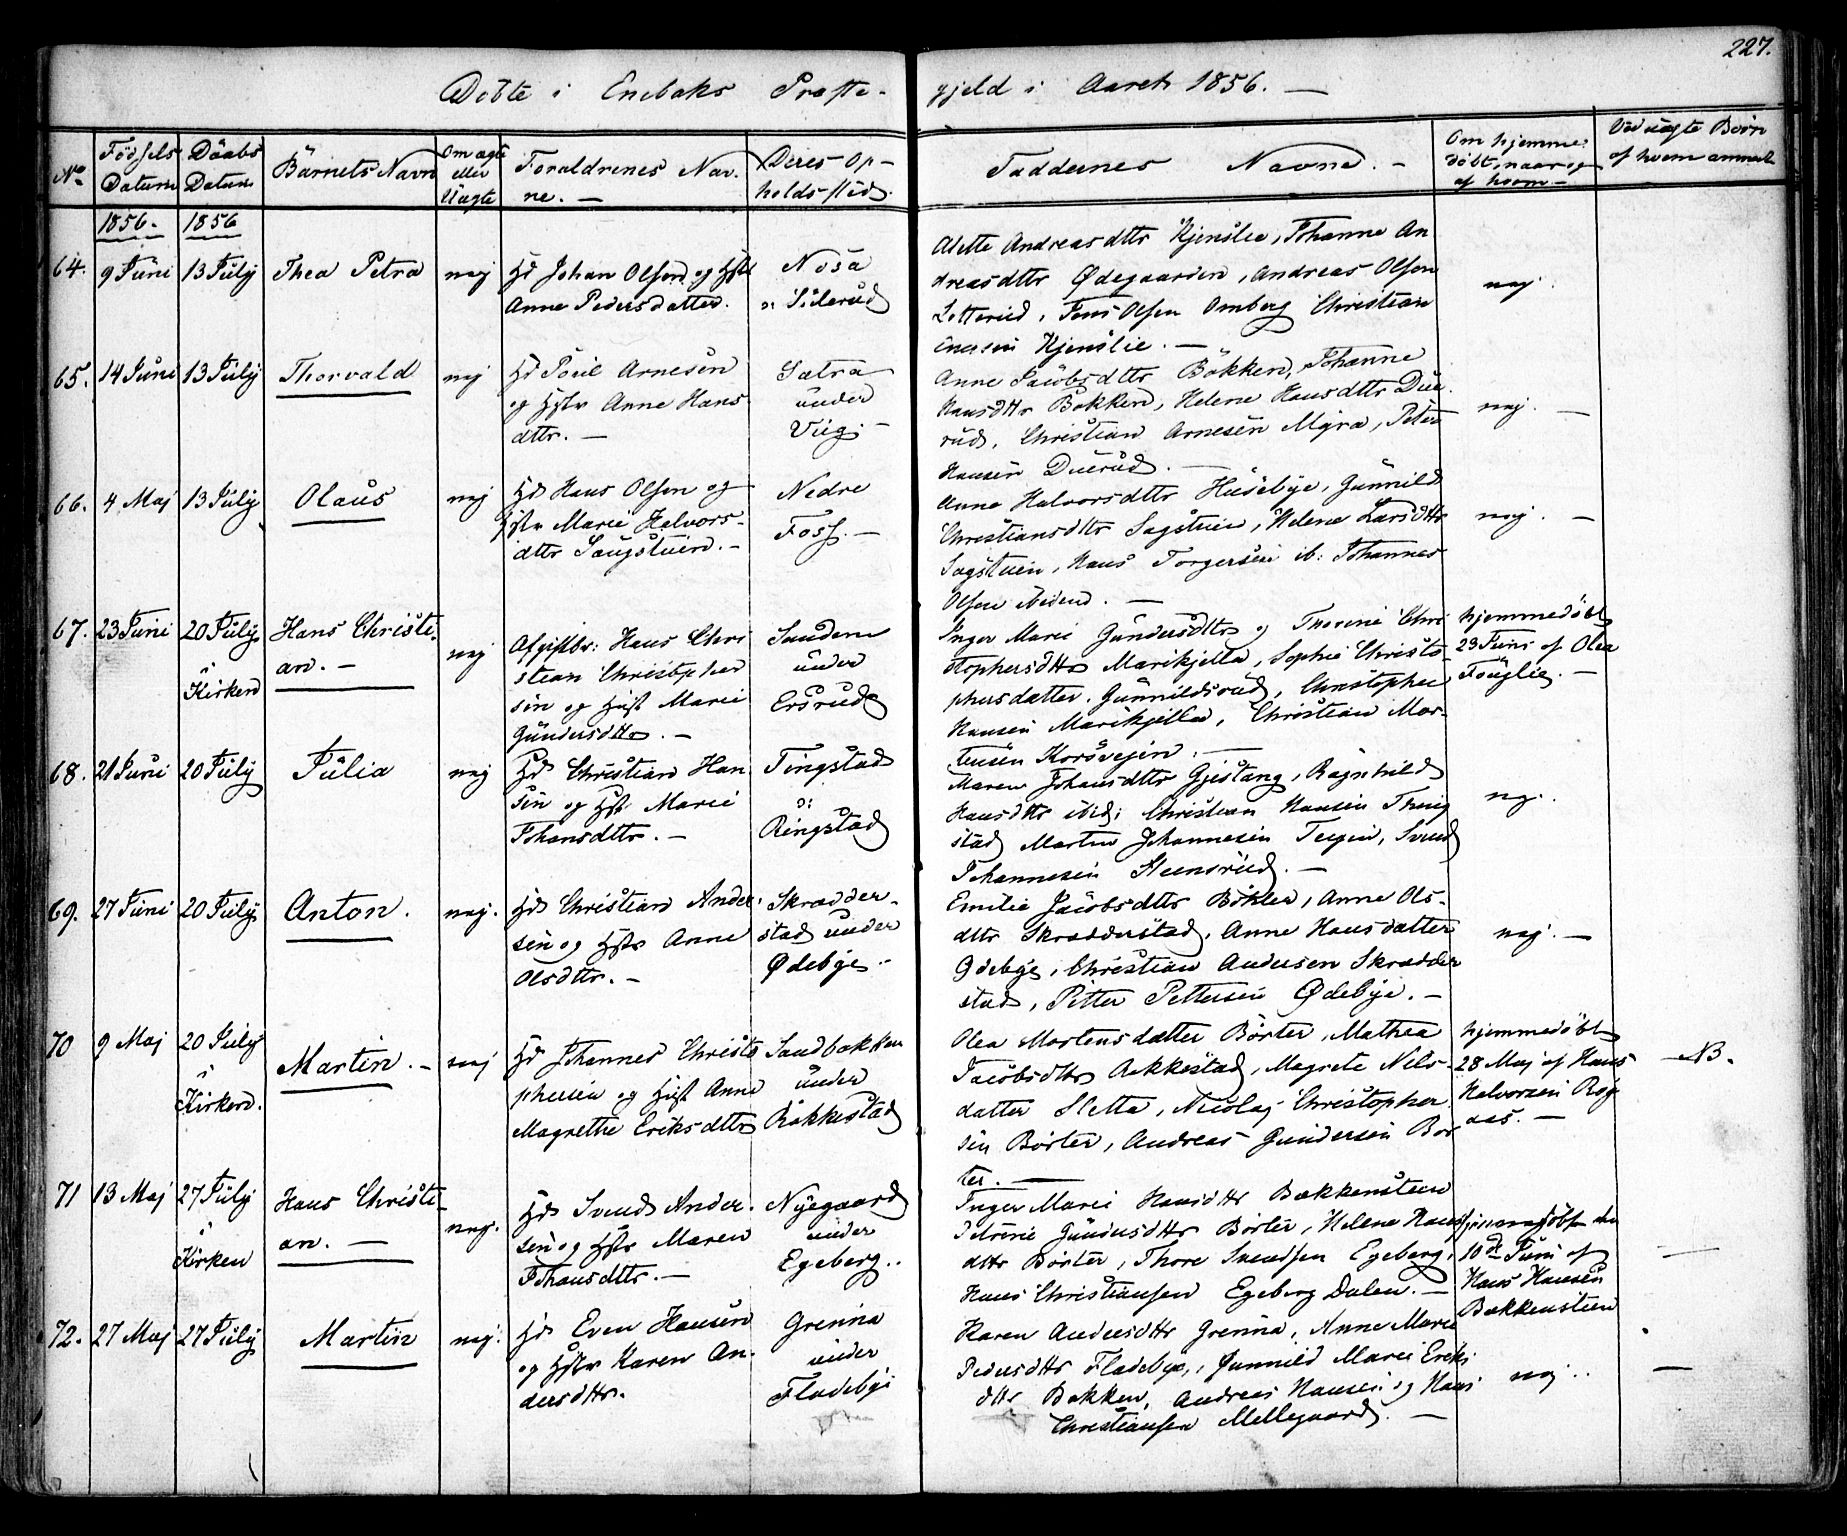 227.
Döbte i Enebaks Præste-
gjeld i Aaret 1856. —
No
Födsels
Datum
Daabs
Datum
Barnets Navn
Om ægte
eller
Uægte
Forældrenes Nav-
ne. —
Deres Op-
holdssted.
Faddernes Navne. —
Om hjemme-
döbt, naar og
af hvem —
Ved uægte Börn
af hvem anmeldt
1856. 1856
64. 9 Juni 13 July Thea Petra nej
Hd Johan Olsen og Hst
Anne Pedersdatter.
Nösa
Sulerud
Alette Andreasdttr Kjenslie, Johanne An
dreasdttr Ødegaarden, Andreas Olsen
Letterud, Jens Olsen Omberg Christian
Kjenslie. —
nej.
65. 14 Juni 13 July Thorvald nej
Hd Poul Arnesen
og Hstr Anne Hans
dttr. —
Sætra
under
Viig. —
Anne Jacobsdttr Bakken, Johanne
Hansdttr Bakken, Helene Hansdttr Due
rud, Christian Arnesen Myra, Peter
Hansen Duerud. —
nej. —
66. 4 Maj 13 July Olaus nej
Hd Hans Olsen og
Hstr Marie Halvors-
dttr Saugstuen. —
Nedre
Foss. —
Anne Halvorsdttr Husebye, Gunnild
Christiansdttr Sagstuen, Helene Larsdttr
Sagstuen, Hans Torgersen ib: Johannes
Olsen ibidem. —
nej. —
67. 23 Juni 20 July
i
Kirken
Hans Christi-
an. —
nej
Afgiftbr: Hans Chri
stian Christopher
sen og Hust Marie
Gundersdttr. —
Sanden
under
Ersrud
Inger Marie Gundersdttr og Thorine Chri
stophersdttr Marikjella, Sophie Christo-
phersdatter Gunnildsrud, Christopher
Hansen Marikjella, Christian Mor-
tensen Korsvejen. —
hjemmedöbt
23 Juni af Olea
Fuglie. —
68. 21 Juni 20 July Julia nej
Hd Christian Han
sen og Hst Marie
Johansdttr. —
Tingstad
o:
Ringstad
Maren Johansdttr Gjestang, Ragnhild
Hansdttr ibid; Christian Hansen Thing
stad Martin Johannesen Svend
Johannesen —
nej.
69. 27 Juni 20 July Anton. nej.
Hd Christian Ander-
sen og Hstr Anne
Olsdttr. —
Skrædder-
stad under
Ødebye.
Emilie Jacobsdttr Böhler, Anne Ols-
dttr Skrædderstad, Anne Hansdatter
Ødebye, Christian Andersen Skrædder
stad, Petter Pettersen Ødebye. —
nej. —
70 9 Maj 20 July
i
Kirken.
Martin. — nej
Hd Johannes Christo
phersen og Hust Anne
Magrethe Eriksdttr
Sandbakken
under
Rakkestad
Olea Mortensdatter Börter, Mathea
Jacobsdttr Rakkestad, Magrete Nils-
datter Sletta, Nicolaj Christopher
sen Börter, Andreas Gundersen Bör
ter. —
hjemmedöbt
28 Maj af Hans
Halvorsen Rög
aas. —
NB.
71 13 Maj 27 July
i
Kirken
Hans Christi-
an. —
nej.
Hd Svend Ander-
sen og Hstr Maren
Johansdttr. —
Nyegaard
under
Egeberg..
Inger Marie Hansdttr Bækkensteen
Petrine Gundersdttr Börter, Helene Hans
dttr Börter, Thore Svendsen Egeberg,
Hans Christiansen Egeberg Dalen. —
hjemmedöbt den
10de Juni af
Hans Hansen
Bækkensteen
—
72. 27 Maj 27 July Martin nej.
Hd Even Hansen
og Hstr Karen An-
dersdttr.
Grenna
under
Fladebÿe
Karen Andersdttr Grenna, Anne Marie
Pedersdttr Fladebye, Gunnild Marie Eriks
dttr Bakken, Andreas Hansen og Hans
Christiansen Mellegaard. —
nej.. —